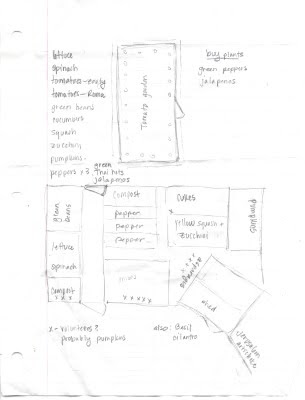 lettuce
spinach
tomatoes - early
tomatoes - Roma
green beans
cucumbers
squash
zucchini
pumpkins
peppers x 3
green
Thai hots
jalapenos
Tomato garden
buy plants
green peppers
jalapenos
green beans
lettuce
spinach
compost
x x x
compost
pepper
pepper
pepper
x x x x x
cukes
x
yellow squash +
zucchini
x x x x
Jerusalem
artichoke
x - volunteers?
probably pumpkins
also: Basil
cilantro